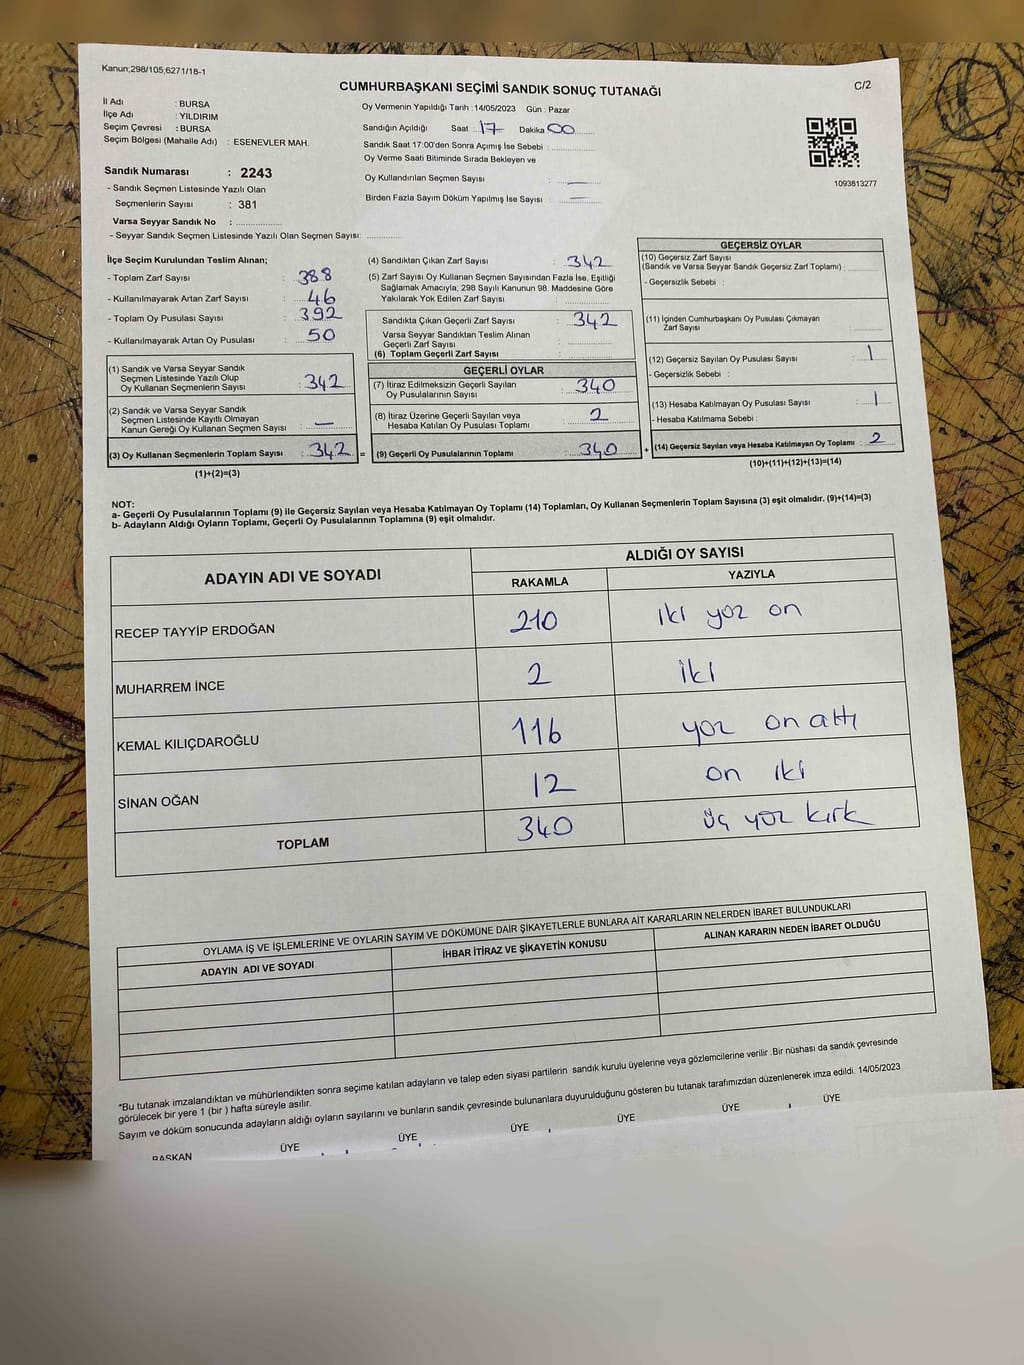 Kanun;298/105,6271/18-1
C/2
CUMHURBAŞKANI SEÇİMİ SANDIK SONUÇ TUTANAĞI
İl Adı : BURSA
İlçe Adı : YILDIRIM
Seçim Çevresi : BURSA
Seçim Bölgesi (Mahalle Adı) : ESENEVLER MAH.
Sandık Numarası : 2243
- Sandık Seçmen Listesinde Yazılı Olan
Seçmenlerin Sayısı : 381
Varsa Seyyar Sandık No :
- Seyyar Sandık Seçmen Listesinde Yazılı Olan Seçmen Sayısı:
Oy Vermenin Yapıldığı Tarih : 14/05/2023 Gün : Pazar
Sandığın Açıldığı Saat : 17 Dakika 00
Sandık Saat 17:00'den Sonra Açılmış İse Sebebi :
Oy Verme Saati Bitiminde Sırada Bekleyen ve
Oy Kullandırılan Seçmen Sayısı : —
Birden Fazla Sayım Döküm Yapılmış İse Sayısı : —
1093813277
İlçe Seçim Kurulundan Teslim Alınan;
- Toplam Zarf Sayısı : 388
- Kullanılmayarak Artan Zarf Sayısı : 46
- Toplam Oy Pusulası Sayısı : 392
- Kullanılmayarak Artan Oy Pusulası : 50
(1) Sandık ve Varsa Seyyar Sandık
Seçmen Listesinde Yazılı Olup
Oy Kullanan Seçmenlerin Sayısı : 342
(2) Sandık ve Varsa Seyyar Sandık
Seçmen Listesinde Kayıtlı Olmayan
Kanun Gereği Oy Kullanan Seçmen Sayısı : —
(3) Oy Kullanan Seçmenlerin Toplam Sayısı : 342 =
(1)+(2)=(3)
(4) Sandıktan Çıkan Zarf Sayısı : 342
(5) Zarf Sayısı Oy Kullanan Seçmen Sayısından Fazla İse, Eşitliği
Sağlamak Amacıyla, 298 Sayılı Kanunun 98. Maddesine Göre
Yakılarak Yok Edilen Zarf Sayısı :
Sandıkta Çıkan Geçerli Zarf Sayısı : 342
Varsa Seyyar Sandıktan Teslim Alınan
Geçerli Zarf Sayısı :
(6) Toplam Geçerli Zarf Sayısı :
GEÇERLİ OYLAR
(7) İtiraz Edilmeksizin Geçerli Sayılan
Oy Pusulalarının Sayısı : 340
(8) İtiraz Üzerine Geçerli Sayılan veya
Hesaba Katılan Oy Pusulası Toplamı : 2
(9) Geçerli Oy Pusulalarının Toplamı : 340 +
GEÇERSİZ OYLAR
(10) Geçersiz Zarf Sayısı
(Sandık ve Varsa Seyyar Sandık Geçersiz Zarf Toplamı) :
- Geçersizlik Sebebi :
(11) İçinden Cumhurbaşkanı Oy Pusulası Çıkmayan
Zarf Sayısı :
(12) Geçersiz Sayılan Oy Pusulası Sayısı : 1
- Geçersizlik Sebebi :
(13) Hesaba Katılmayan Oy Pusulası Sayısı : 1
- Hesaba Katılmama Sebebi :
(14) Geçersiz Sayılan veya Hesaba Katılmayan Oy Toplamı : 2
(10)+(11)+(12)+(13)=(14)
NOT:
a- Geçerli Oy Pusulalarının Toplamı (9) ile Geçersiz Sayılan veya Hesaba Katılmayan Oy Toplamı (14) Toplamları, Oy Kullanan Seçmenlerin Toplam Sayısına (3) eşit olmalıdır. (9)+(14)=(3)
b- Adayların Aldığı Oyların Toplamı, Geçerli Oy Pusulalarının Toplamına (9) eşit olmalıdır.
ADAYIN ADI VE SOYADI
ALDIĞI OY SAYISI
RAKAMLA YAZIYLA
RECEP TAYYİP ERDOĞAN 210 iki yoz on
MUHARREM İNCE 2 iki
KEMAL KILIÇDAROĞLU 116 yoz on altı
SİNAN OĞAN 12 on iki
TOPLAM 340 üç yoz kırk
OYLAMA İŞ VE İŞLEMLERİNE VE OYLARIN SAYIM VE DÖKÜMÜNE DAİR ŞİKAYETLERLE BUNLARA AİT KARARLARIN NELERDEN İBARET BULUNDUKLARI
ADAYIN ADI VE SOYADI İHBAR İTİRAZ VE ŞİKAYETİN KONUSU ALINAN KARARIN NEDEN İBARET OLDUĞU
*Bu tutanak imzalandıktan ve mühürlendikten sonra seçime katılan adayların ve talep eden siyasi partilerin sandık kurulu üyelerine veya gözlemcilerine verilir .Bir nüshası da sandık çevresinde
görülecek bir yere 1 (bir ) hafta süreyle asılır.
Sayım ve döküm sonucunda adayların aldığı oyların sayılarını ve bunların sandık çevresinde bulunanlara duyurulduğunu gösteren bu tutanak tarafımızdan düzenlenerek imza edildi. 14/05/2023
BAŞKAN ÜYE ÜYE ÜYE ÜYE ÜYE ÜYE